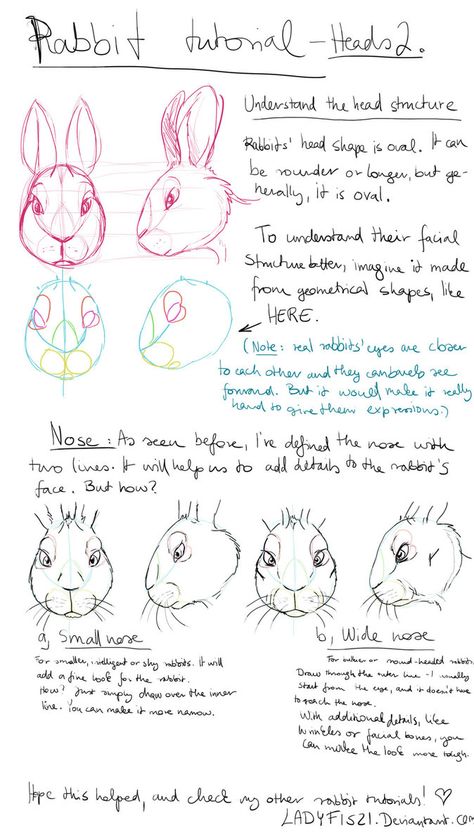 Rabbit tutorial - Heads 2.
Understand the head structure
Rabbits' head shape is oval. It can
be rounder or longer, but ge-
nerally, it is oval.
To understand their facial
structure better, imagine it made
from geometrical shapes, like
HERE.
(Note: real rabbits' eyes are closer
to each other and they can barely see
forward. But it would make it really
hard to give them expressions.)
Nose: As seen before, I've defined the nose with
two lines. It will help us to add details to the rabbit's
face. But how?
a, Small nose
For smaller, intelligent or shy rabbits. It will
add a fine look for the rabbit.
How? Just simply draw over the inner
line. You can make it more narrow.
b, Wide nose
For bulkier or round-headed rabbits
Draw through the outer line - I usually
start from the eye, and it doesn't have
to reach the nose.
With additional details, like
wrinkles or facial bones, you
can make the look more tough.
Hope this helped, and check my other rabbit tutorials! ♡
LADYFISZI.Deviantart.com